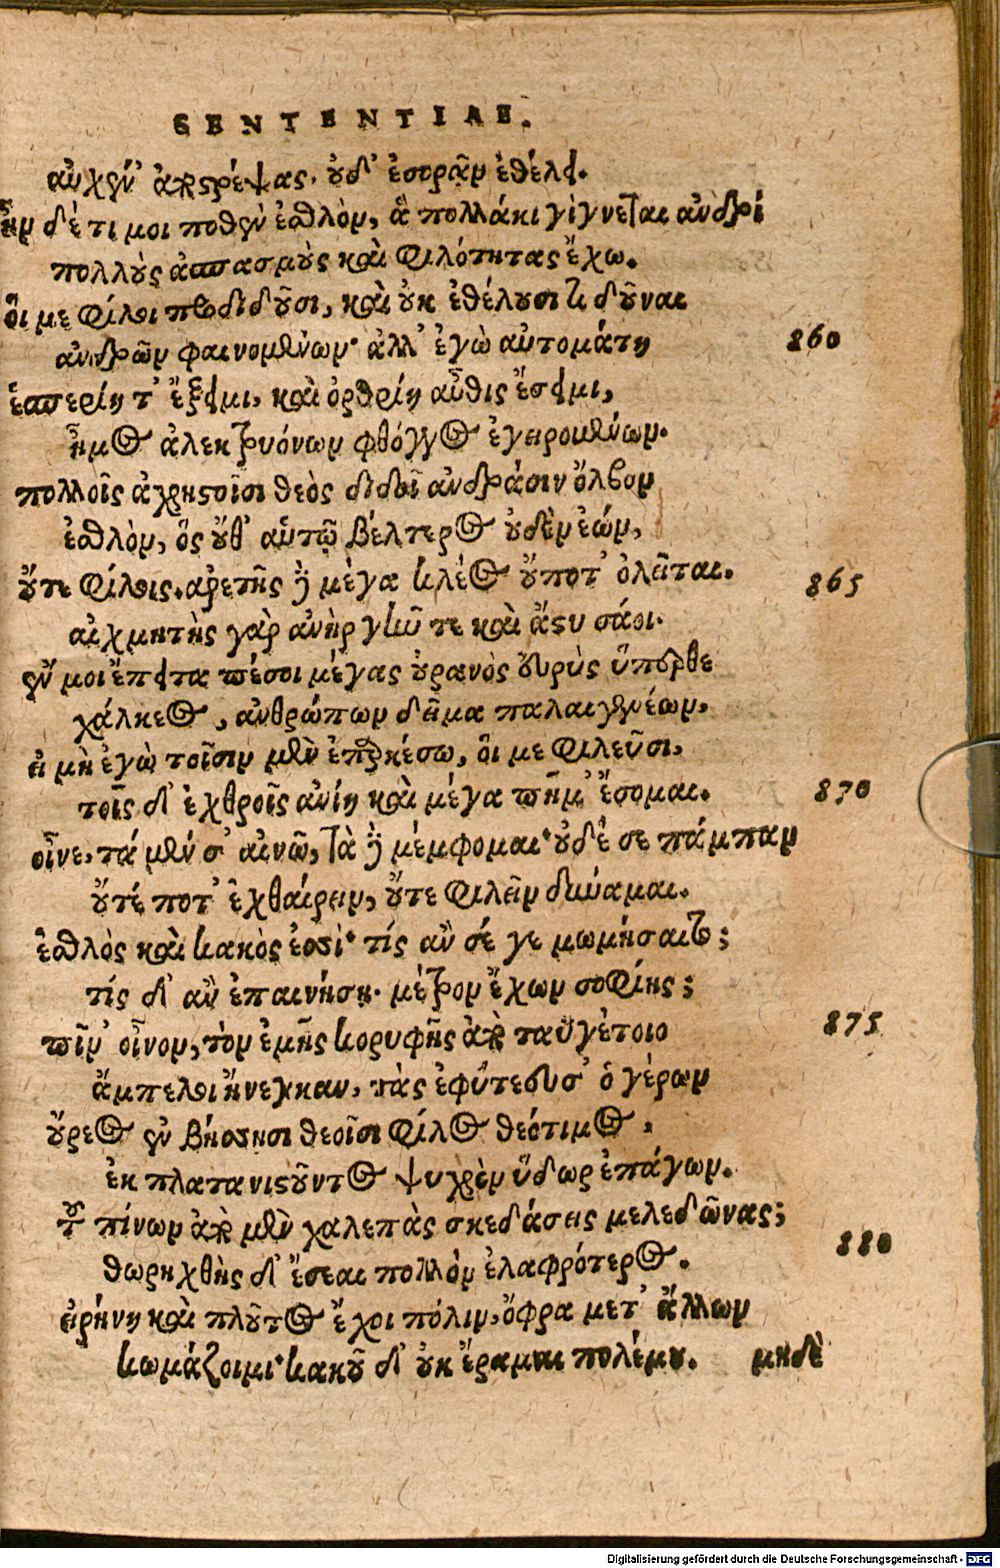 SENTENTIAE.
αὐχέν' ἀποστρέψας, οὐδ' ἐσορᾷν ἐθέλει.
ἢν δέ τι μοι ποθὲν ἐσθλὸν, ἃ πολλάκι γίγνεται ἀνδρὶ
πολλοὺς ἀσπασμοὺς καὶ φιλότητας ἔχω.
οἵ με φίλοι προδιδοῦσι, καὶ οὐκ ἐθέλουσί τι δοῦναι
ἀνδρῶν φαινομένων· ἀλλ' ἐγὼ αὐτομάτη 860
ἑσπερίη τ' ἔξειμι, καὶ ὀρθρίη αὖθις ἔσειμι,
ἦμος ἀλεκτρυόνων φθόγγος ἐγειρομένων.
πολλοῖς ἀχρήστοισι θεὸς διδοῖ ἀνδράσιν ὄλβον
ἐσθλὸν, ὃς οὔθ' αὑτῷ βέλτερος οὐδὲν ἐών,
οὔτε φίλοις. ἀρετῆς δὲ μέγα κλέος οὔποτ' ὀλεῖται. 865
αἰχμητὴς γὰρ ἀνὴρ γῆν τε καὶ ἄστυ σάοι.
ἔν μοι ἔπειτα πέσοι μέγας οὐρανὸς εὐρὺς ὕπερθε
χάλκεος, ἀνθρώπων δεῖμα παλαιγενέων,
εἰ μὴ ἐγὼ τοῖσιν μὲν ἐπαρκέσω, οἵ με φιλεῦσι,
τοῖς δ' ἐχθροῖς ἀνίη καὶ μέγα πῆμ' ἔσομαι. 870
οἶνε, τά μέν σ' αἰνῶ, τὰ δὲ μέμφομαι· οὐδέ σε πάμπαν
οὔτέ ποτ' ἐχθαίρειν, οὔτε φιλεῖν δύναμαι.
ἐσθλὸς καὶ κακὸς ἐσσί· τίς ἄν σέ γε μωμήσαιτο;
τίς δ' ἂν ἐπαινήσῃ· μέτρον ἔχων σοφίης;
πῖν' οἶνον, τὸν ἐμῆς κορυφῆς ἀπὸ ταϋγέτοιο 875
ἄμπελοι ἤνεγκαν, τὰς ἐφύτευσ' ὁ γέρων
οὔρεος ἐν βήσσησι θεοῖσι φίλος θεότιμος,
ἐκ πλατανιστοῦντος ψυχρὸν ὕδωρ ἐπάγων.
τοῦ πίνων ἀπὸ μὲν χαλεπὰς σκεδάσεις μελεδῶνας;
θωρηχθὴς δ' ἔσεαι πολλὸν ἐλαφρότερος. 880
εἰρήνη καὶ πλοῦτος ἔχοι πόλιν, ὄφρα μετ' ἄλλων
κωμάζοιμι· κακοῦ δ' οὐκ ἔραμαι πολέμου. μηδὲ
Digitalisierung gefördert durch die Deutsche Forschungsgemeinschaft - DFG